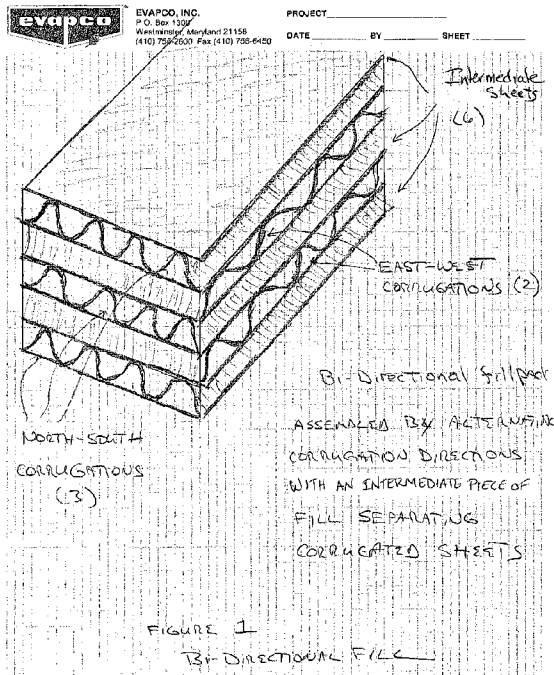 evapco
EVAPCO, INC.
P.O. Box 1300
Westminster, Maryland 21158
(410) 756-2600 Fax (410) 756-6450
PROJECT
DATE BY SHEET
Intermediate
Sheets
(6)
EAST-WEST
CORRUGATIONS (2)
Bi-Directional fill pack
ASSEMBLED BY ALTERNATING
CORRUGATION DIRECTIONS
WITH AN INTERMEDIATE PIECE OF
FILL SEPARATING
CORRUGATED SHEETS
NORTH-SOUTH
CORRUGATIONS
(3)
FIGURE 1
BI-DIRECTIONAL FILL